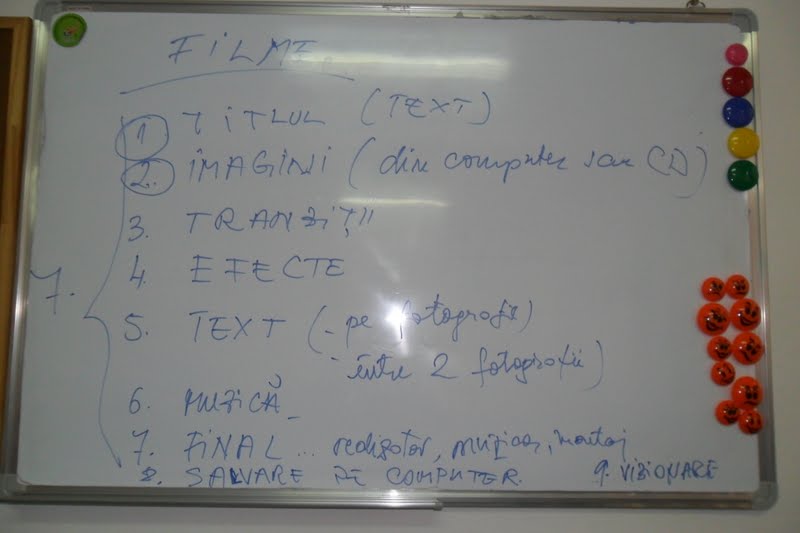 FILME
1 TITLUL (TEXT)
2. IMAGINI (din computer sau CD)
3. TRANZIȚII
4. EFECTE
7.
5. TEXT (- pe fotografii
- între 2 fotografii)
6. MUZICĂ
7. FINAL... redactor, muzica, montaj
8. SALVARE PE COMPUTER. 9. VIZIONARE